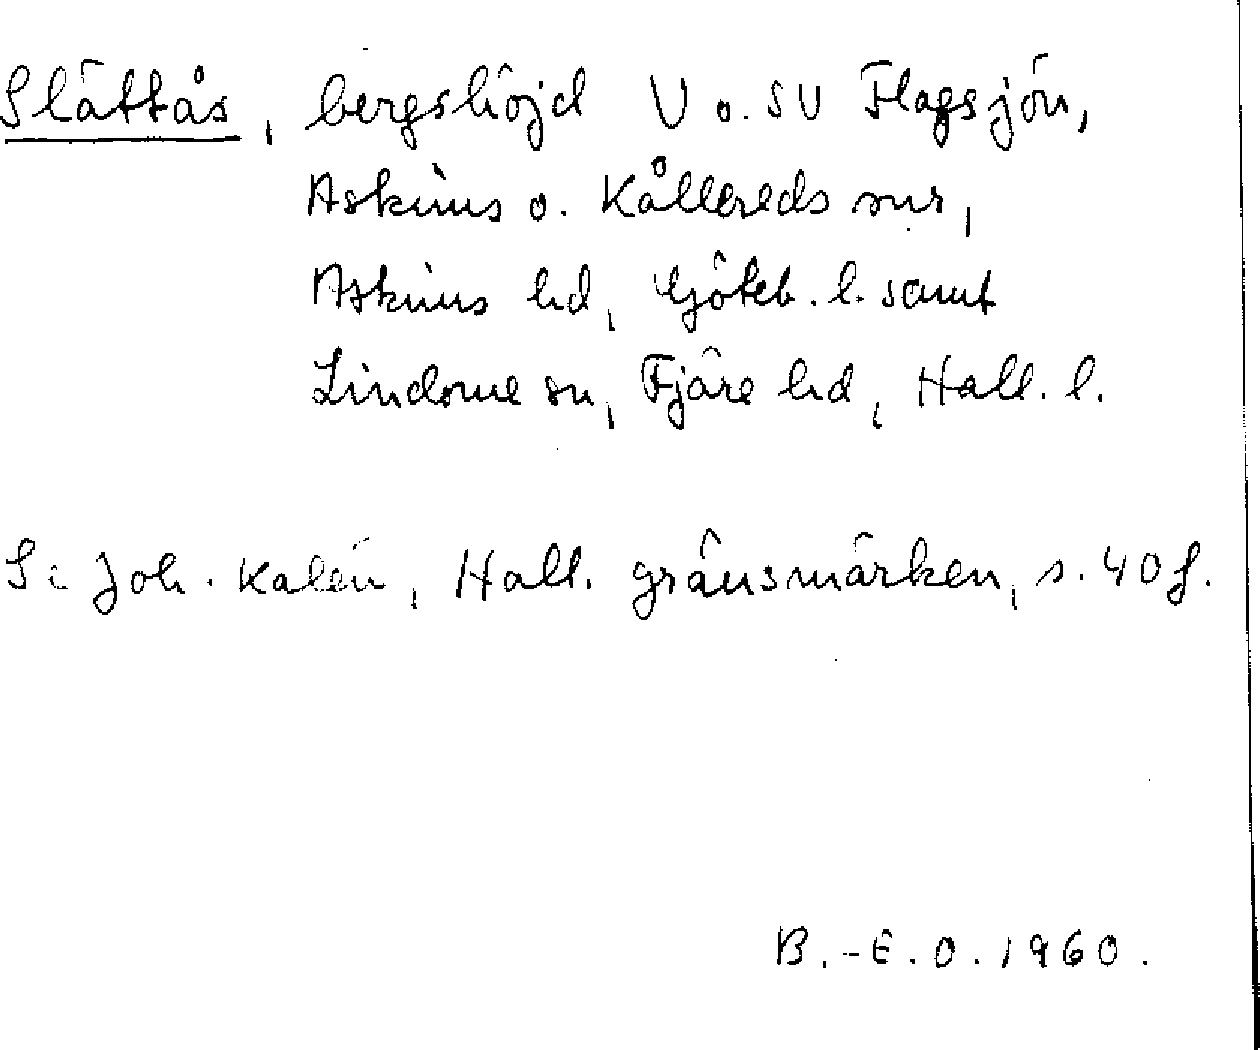 Slättås, bergshöjd V o. SV Flagsjön,
Askims o. Kållereds snr,
Askims hd, Göteb. l. samt
Lindome sn, Fjäre hd, Hall. l.
Se Joh. Kalén, Hall. gränsmärken, s. 40 f.
B.-E. O. 1960.